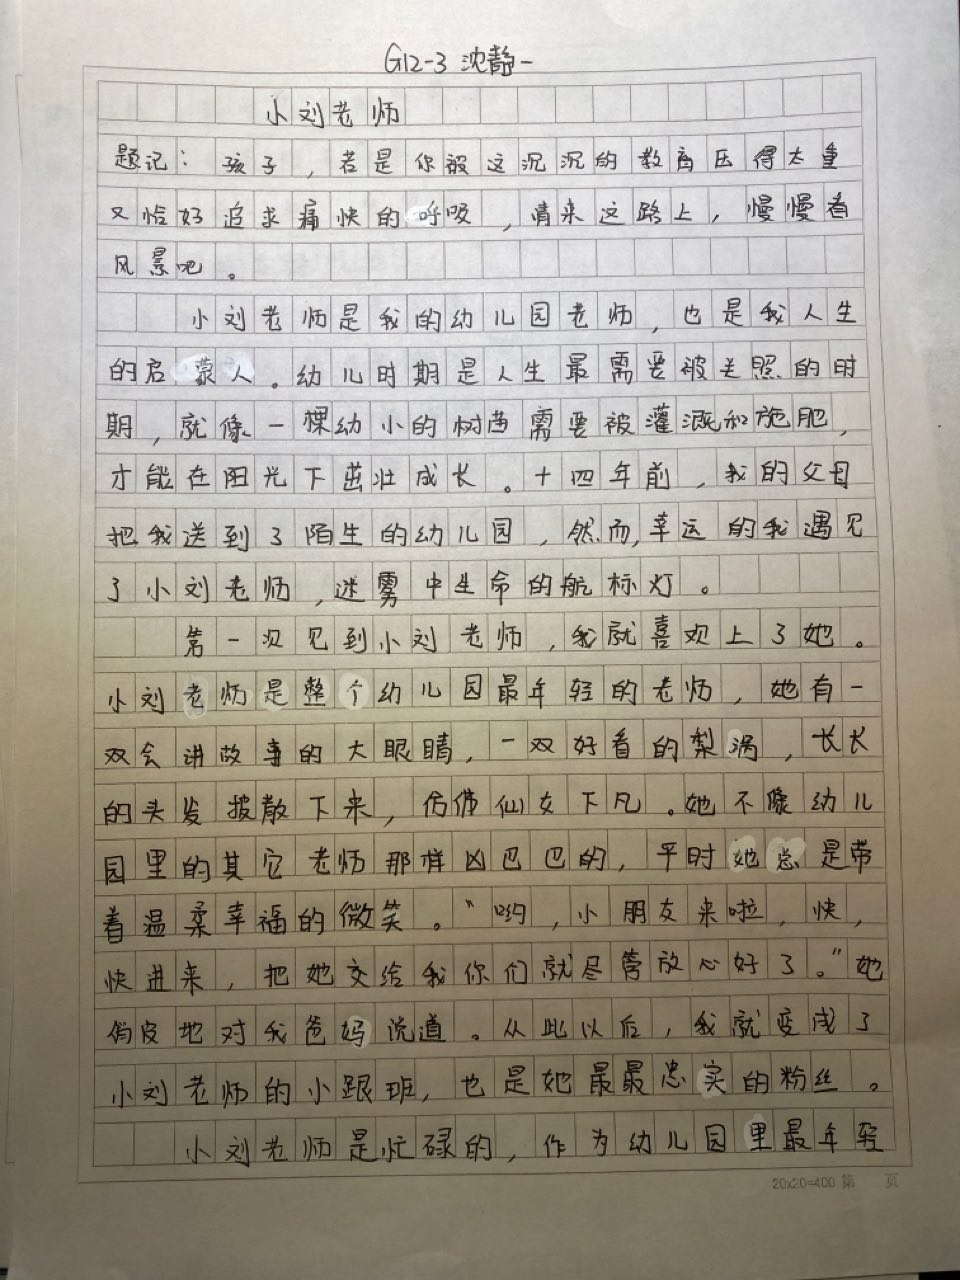 G12-3 沈静一
小刘老师
题记：孩子，若是你被这沉沉的教育压得太重
又恰好追求痛快的呼吸，请来这路上，慢慢看
风景吧。
小刘老师是我的幼儿园老师，也是我人生
的启蒙人。幼儿时期是人生最需要被关照的时
期，就像一棵幼小的树苗需要被灌溉和施肥，
才能在阳光下茁壮成长。十四年前，我的父母
把我送到了陌生的幼儿园，然而，幸运的我遇见
了小刘老师，迷雾中生命的航标灯。
第一次见到小刘老师，我就喜欢上了她。
小刘老师是整个幼儿园最年轻的老师，她有一
双会讲故事的大眼睛，一双好看的梨涡，长长
的头发披散下来，仿佛仙女下凡。她不像幼儿
园里的其它老师那样凶巴巴的，平时她总是带
着温柔幸福的微笑。“哟，小朋友来啦，快，
快进来，把她交给我你们就尽管放心好了。”她
俏皮地对我爸妈说道。从此以后，我就变成了
小刘老师的小跟班，也是她最最忠实的粉丝。
小刘老师是忙碌的，作为幼儿园里最年轻
20x20=400 第 页